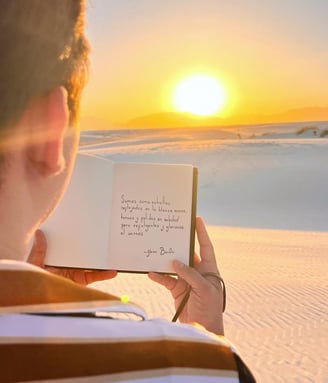 Somos como estrellas
reflejadas en la blanca arena,
tenues y pálidas en soledad
pero refulgentes y gloriosas
al unirnos